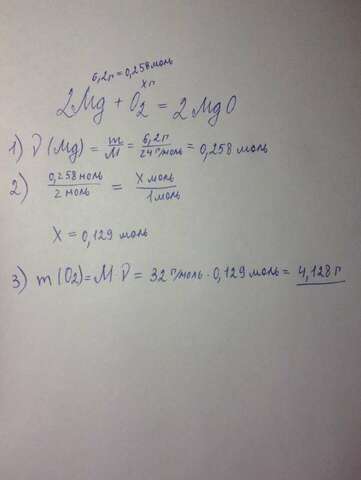 6,2г = 0,258 моль
х г
2Mg + O₂ = 2MgO
1) ν (Mg) = m/M = 6,2г/24 г/моль = 0,258 моль
2) 0,258 моль/2 моль = х моль/1 моль
х = 0,129 моль
3) m (O₂) = M·ν = 32 г/моль · 0,129 моль = 4,128 г